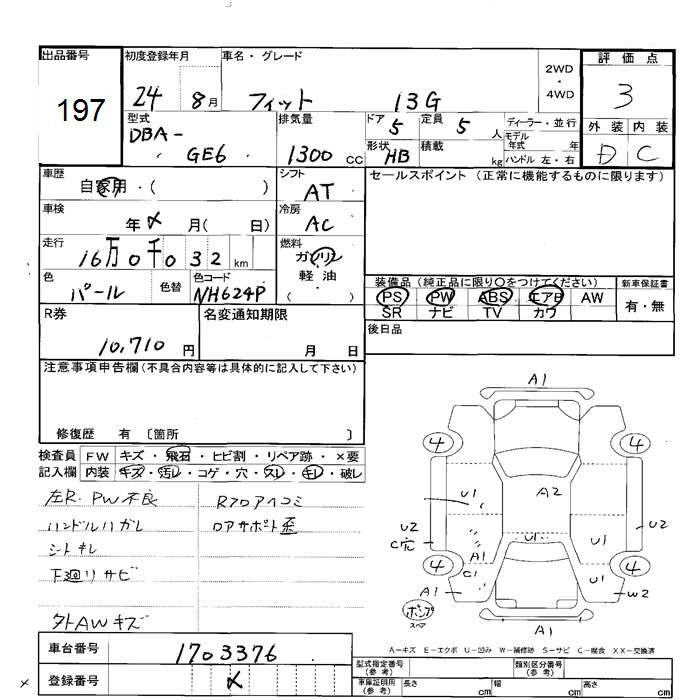 出品番号
197
初度登録年月
24 8月
車名・グレード
フィット 13G
2WD
・
4WD
評価点
3
外装 内装
D C
型式
DBA-
GE6
排気量
1300 cc
ドア 5
形状 HB
定員 5 人
積載 kg
ディーラー・並行
モデル年式 年
ハンドル 左・右
車歴
自家用・( )
シフト
AT
セールスポイント (正常に機能するものに限ります)
車検
年 メ 月( 日)
冷房
AC
走行
16万0千032km
燃料
ガソリン
軽油
( )
色
パール
色替
色コード
NH624P
装備品 (純正品に限り○をつけてください)
PS PW ABS エアB AW
SR ナビ TV カワ
新車保証書
有・無
R券
10,710円
名変通知期限
月 日
後日品
注意事項申告欄(不具合内容等は具体的に記入して下さい)
修復歴 有 〔箇所 〕
検査員
記入欄
FW キズ・飛石・ヒビ割・リペア跡・×要
内装 キズ・汚レ・コゲ・穴・スレ・キレ・破レ
左R.PW不良
ハンドルハガレ
シートキレ
下廻リサビ
外AWキズ
Rフロアヘコミ
ロアサポート歪
A1
4 4
U1 A2
U2
C穴
U1 U1 U2
A1
4 C1 U1 4
A1 W2
ポンプ
スペア
A1
A-キズ E-エクボ U-凹み W-補修跡 S-サビ C-腐食 XX-交換済
車台番号
1703376
登録番号
メ
型式指定番号
(参考)
類別区分番号
(参考)
車庫証明用
(参考)
長さ cm
幅 cm
高さ cm
×